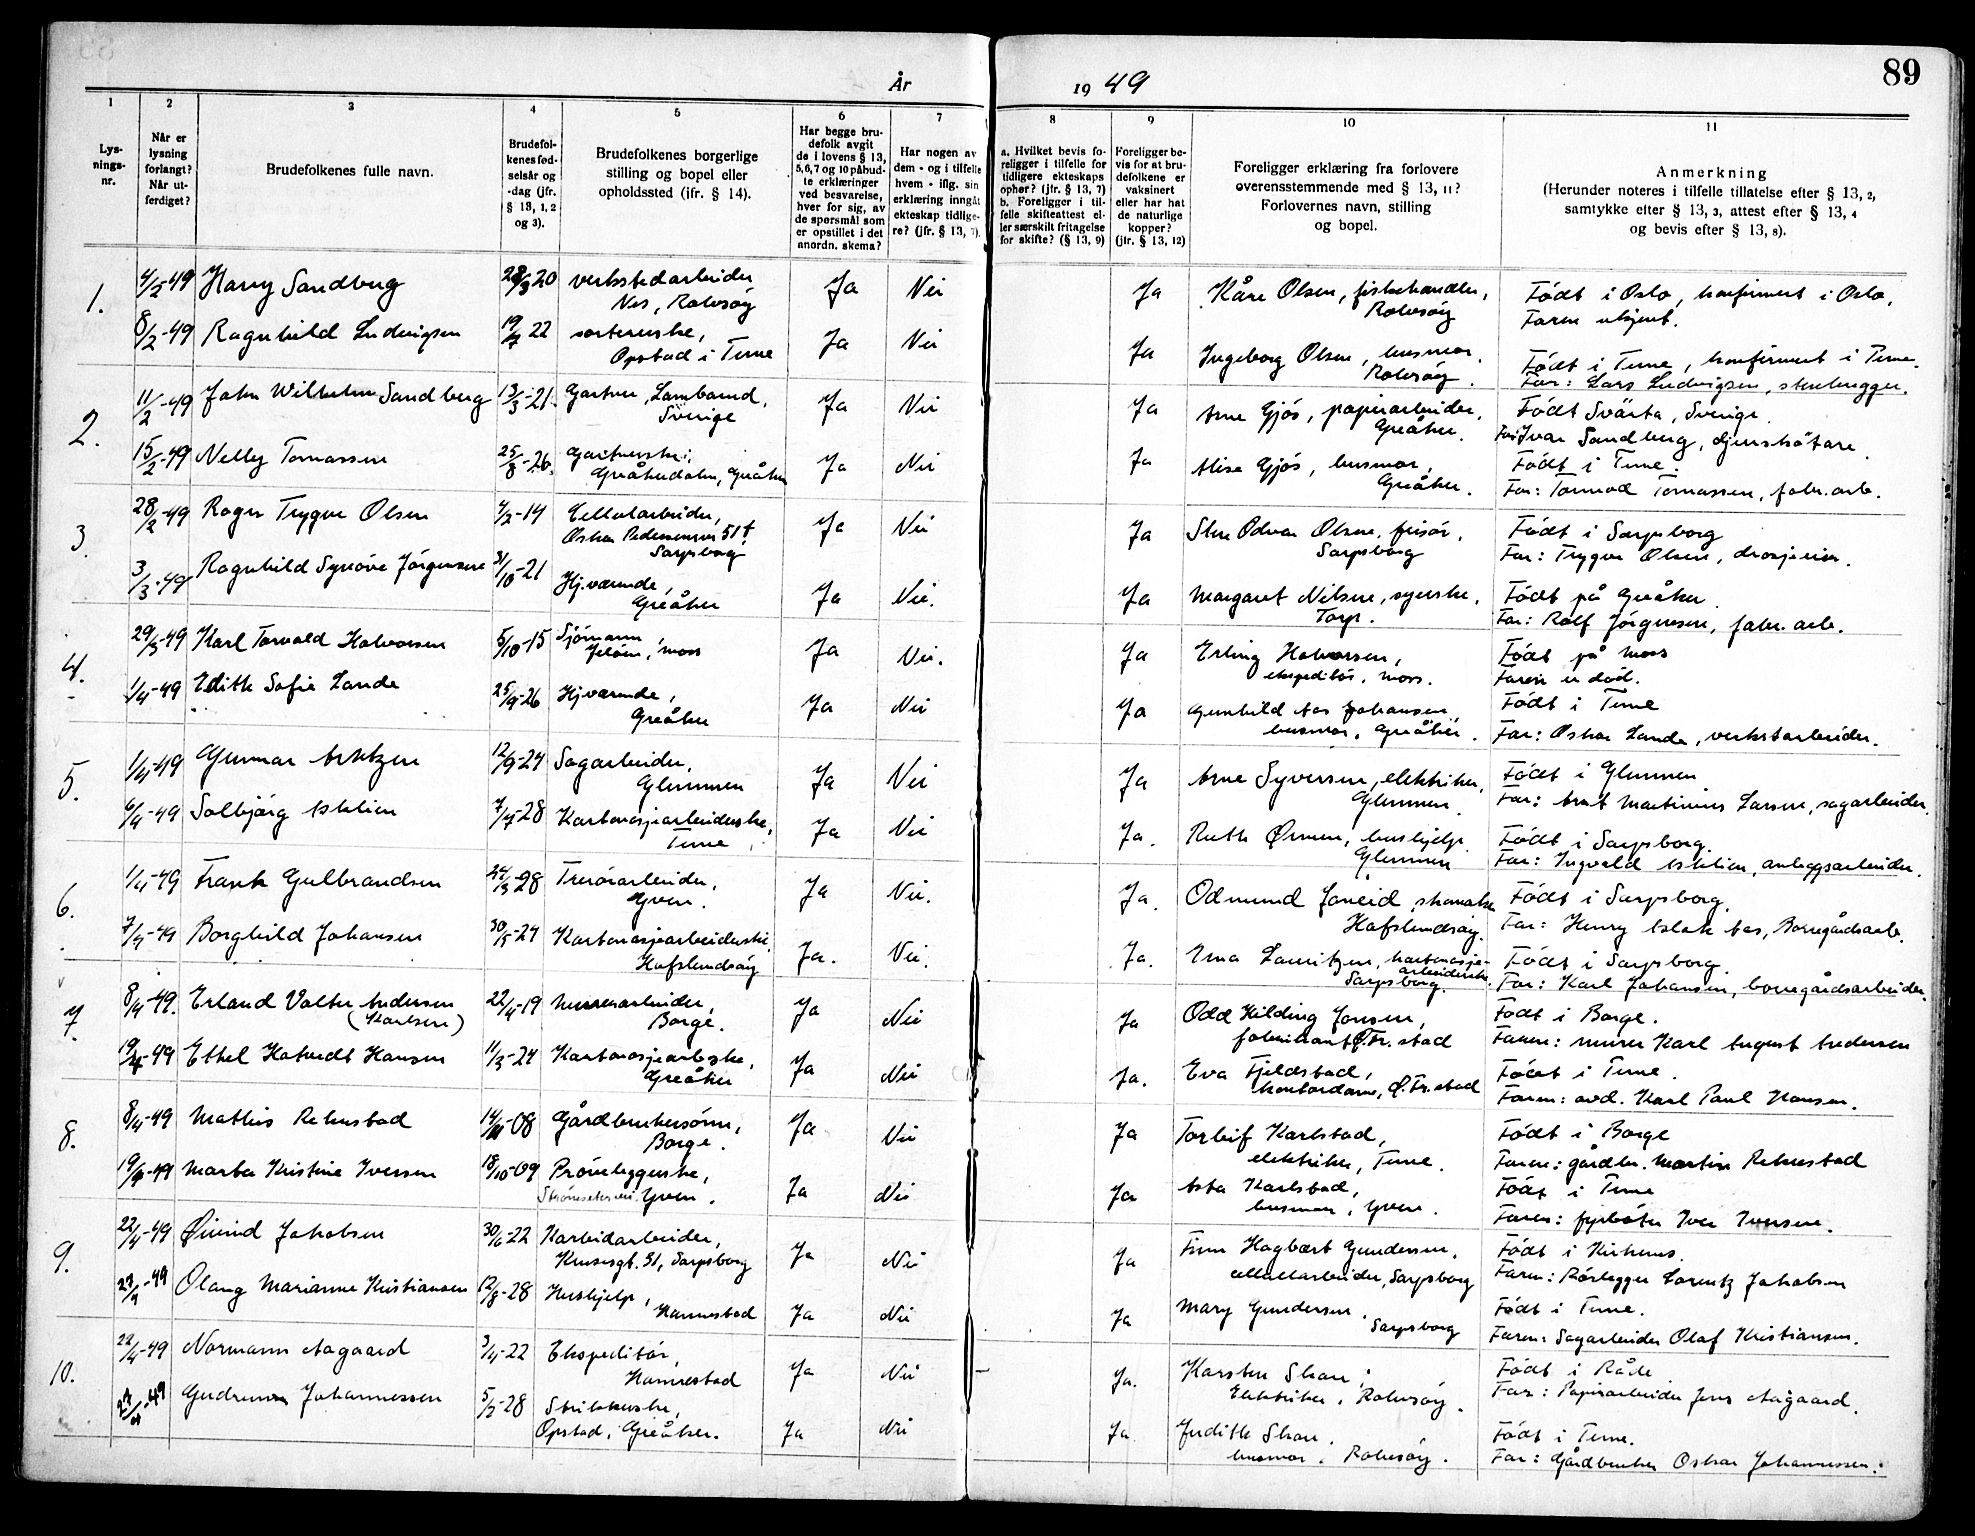 89
År 1949
1 2 3 4 5 6 7 8 9 10 11
Lysningsnr.
Når er lysning forlangt? Når utferdiget?
Brudefolkenes fulle navn.
Brudefolkenes fødselsår og -dag (jfr. § 13, 1, 2 og 3).
Brudefolkenes borgerlige stilling og bopel eller opholdssted (jfr. § 14).
Har begge brudefolk avgit de i lovens § 13, 5, 6, 7 og 10 påbudte erklæringer ved besvarelse, hver for sig, av de spørsmål som er opstillet i det anordn. skema?
Har nogen av dem - og i tilfelle hvem - iflg. sin erklæring inngåt ekteskap tidligere? (jfr. § 13, 7).
a. Hvilket bevis foreligger i tilfelle for tidligere ekteskaps ophør? (jfr. § 13, 7)
b. Foreligger i tilfelle skifteattest eller særskilt fritagelse for skifte? (§ 13, 9)
Foreligger bevis for at brudefolkene er vaksinert eller har hat de naturlige kopper? (jfr. § 13, 12)
Foreligger erklæring fra forlovere overensstemmende med § 13, 11? Forlovernes navn, stilling og bopel.
Anmerkning
(Herunder noteres i tilfelle tillatelse efter § 13, 2, samtykke efter § 13, 3, attest efter § 13, 4 og bevis efter § 13, 8).
1. 4/2-49 Harry Sandberg 28/3 20 verkstedarbeider Nei Ja Kåre Olsen, fiskehandler, Født i Oslo, konfirmert i Oslo,
Nes, Rolvsøy Ja Rolvsøy Faren ukjent.
8/2-49 Ragnhild Ludvigsen 19/7 22 sortererske, Ja Nei Ja Ingeborg Olsen, husmor, Født i Tune, konfirmert i Tune.
Opstad i Tune Rolvsøy. Far: Lars Ludvigsen, stenhugger.
2. 11/2-49 John Wilhelm Sandberg 13/3-21. Gartner, Ja Nei Ja Arne Gjøs, papirarbeider, Født Svärta, Sverige.
Sverige Greåker. Far: Ivar Sandberg, djurskötare.
15/2-49 Nelly Tomassen 25/8-26. Gartnerske, Ja Nei Ja Alise Gjøs, husmor, Født i Tune.
Greåkerdalen, Greåker Greåker. Far: Tormod Tomassen, fabr.arb.
3. 28/2-49 Roger Trygve Olsen 4/2-14 Cellul.arbeider, Ja Nei Ja Sten Odvar Olsen, frisør, Født i Sarpsborg
Oskar Pedersensvei 51 Sarpsborg Sarpsborg Far: Trygve Olsen, drosjeeier.
3/3-49 Ragnhild Synøve Jørgensen 31/10-21 Hj.værende, Ja Nei. Ja Margaret Nilsen, syerske, Født på Greåker.
Greåker Torp. Far: Rolf Jørgensen, fabr. arb.
4. 29/3-49 Karl Torvald Halvorsen 5/10-15 Sjømann Ja Nei. Ja Erling Halvorsen, Født på Moss
Jeløen, Moss ekspeditør, Moss. Faren er død.
1/4-49 Edith Sofie Lande 25/9-26 Hj.værende, Ja Nei Ja Gunhild Aas Johansen, Født i Tune
Greåker husmor, Greåker. Far: Oskar Lande, verkstarbeider.
5. 1/4-49 Gunnar Arntzen 12/9-24 Sagarbeider, Ja Nei Ja Arne Syversen, elektriker, Født i Glemmen
Glemmen Glemmen. Far: Arnt Martinius Larsen, sagarbeider.
6/4-49 Solbjørg Eskelien 7/7-28 Kartonasjearbeiderske, Ja Nei Ja. Ruth Ørmen, hushjelp Født i Sarpsborg.
Tune Glemmen Far: Ingvald Eskelien, anleggsarbeider.
6. 1/4-49 Frank Gulbrandsen 24/3-28 Trerørarbeider, Ja Nei. Ja. Odmund Joneid, Født i Sarpsborg.
Yven. Hafslundsøy. Far: Henry Aslak Aas, Borregårdsarb.
7/4-49 Borghild Johansen 30/5-24 Kartonasjearbeiderske, Ja. Nei. Ja. Erna Lauritzen, kartonasjearbeiderske. Født i Sarpsborg.
Hafslundsøy Sarpsborg. Far: Karl Johansen, borregårdsarbeider.
7. 8/4-49. Erland Valter Andersen 22/4-19 Murerarbeider, Ja Nei Ja Odd Hilding Jonsen, Født i Borge.
(Karlsen) Borge. fabrikant, Ø.Fr.stad Faren: murer Karl August Andersen
19/4-49 Ethel Hatvedt Hansen 11/3-24 Kartonasjearb.ske, Ja Nei Ja. Eva Fjeldstad, Født i Tune.
Greåker kontordame, Ø.Fr.stad Faren: avd. Karl Paul Hansen.
8. 8/4-49 Mathis Rekustad 14/11-08 Gårdbrukersønn, Ja Nei Ja Torleif Karlstad, Født i Borge
Borge. elektriker, Tune. Faren: gårdbr. Martin Rekustad
19/4-49 Marta Kristine Iversen 18/10-09 Prøveleggerske, Ja Nei Ja Asta Karlstad, Født i Tune
Yven. husmor, Yven. Faren: fyrbøter Iver Iversen.
9. 22/4-49 Øivind Jakobsen 30/6-22 Karbidarbeider, Ja Nei Ja Finn Hagbart Gundersen, Født i Kirkenes.
Krusesgt. 31, Sarpsborg cellularbeider, Sarpsborg Faren: Rørlegger Lorentz Jakobsen
27/4-49 Olaug Marianne Kristiansen 12/8-28 Hushjelp, Ja Nei Ja Mary Gundersen. Født i Tune.
Hannestad Sarpsborg Faren: Sagarbeider Olaf Kristiansen.
10. 22/4-49 Normann Aagaard 3/4-22 Ekspeditør, Ja Nei Ja. Karsten Skau, Født i Råde
Hannestad Elektriker, Rolvsøy. Far: Papirarbeider Jens Aagaard.
27/4-49 Gudrun Johannessen 5/2-28 Strikkerske, Ja Nei Ja Judith Skau, Født i Tune.
Opstad, Greåker. husmor, Rolvsøy. Far: Gårdbruker Oskar Johannessen.